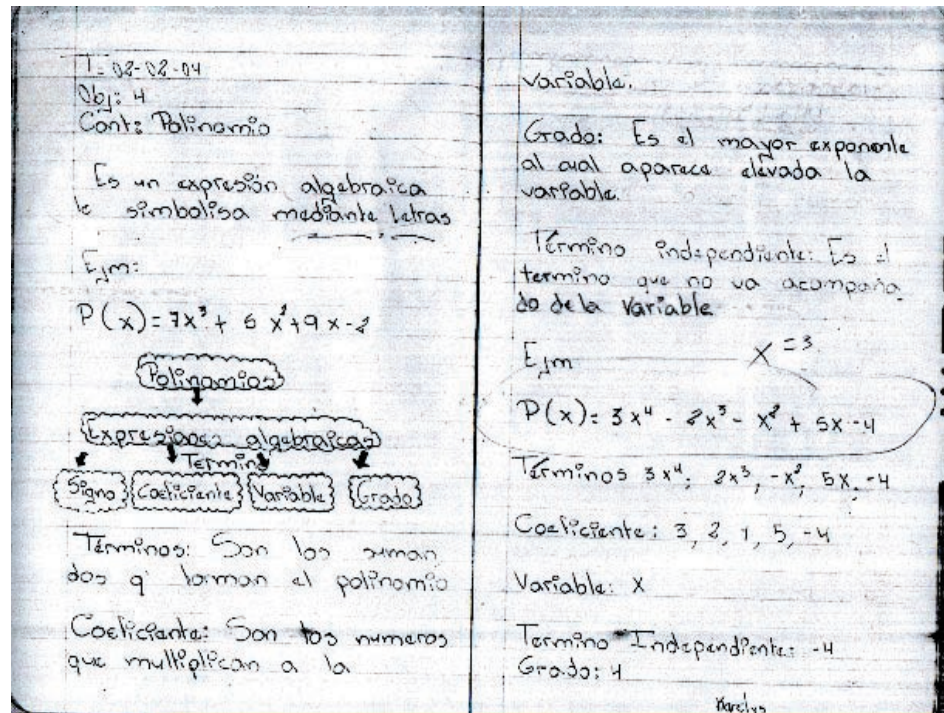 T- 02-02-04
Obj: 4
Cont: Polinomio
Es un expresión algebraica
le simbolisa mediante letras
Ejm:
P(x) = 7x³ + 5x² + 9x - 2
Polinomios
Expresiones algebraicas
Termino
Signo Coeficiente Variable Grado
Términos: Son los suman
dos q' forman el polinomio
Coeficiente: Son los numeros
que multiplican a la
variable.
Grado: Es el mayor exponente
al cual aparece elevada la
variable.
Término independiente: Es el
termino que no va acompaña
do de la variable
Ejm
x = 3
P(x) = 3x⁴ - 2x³ - x² + 5x - 4
Términos 3x⁴, 2x³, -x², 5x, -4
Coeficiente: 3, 2, 1, 5, -4
Variable: x
Termino Independiente: -4
Grado: 4